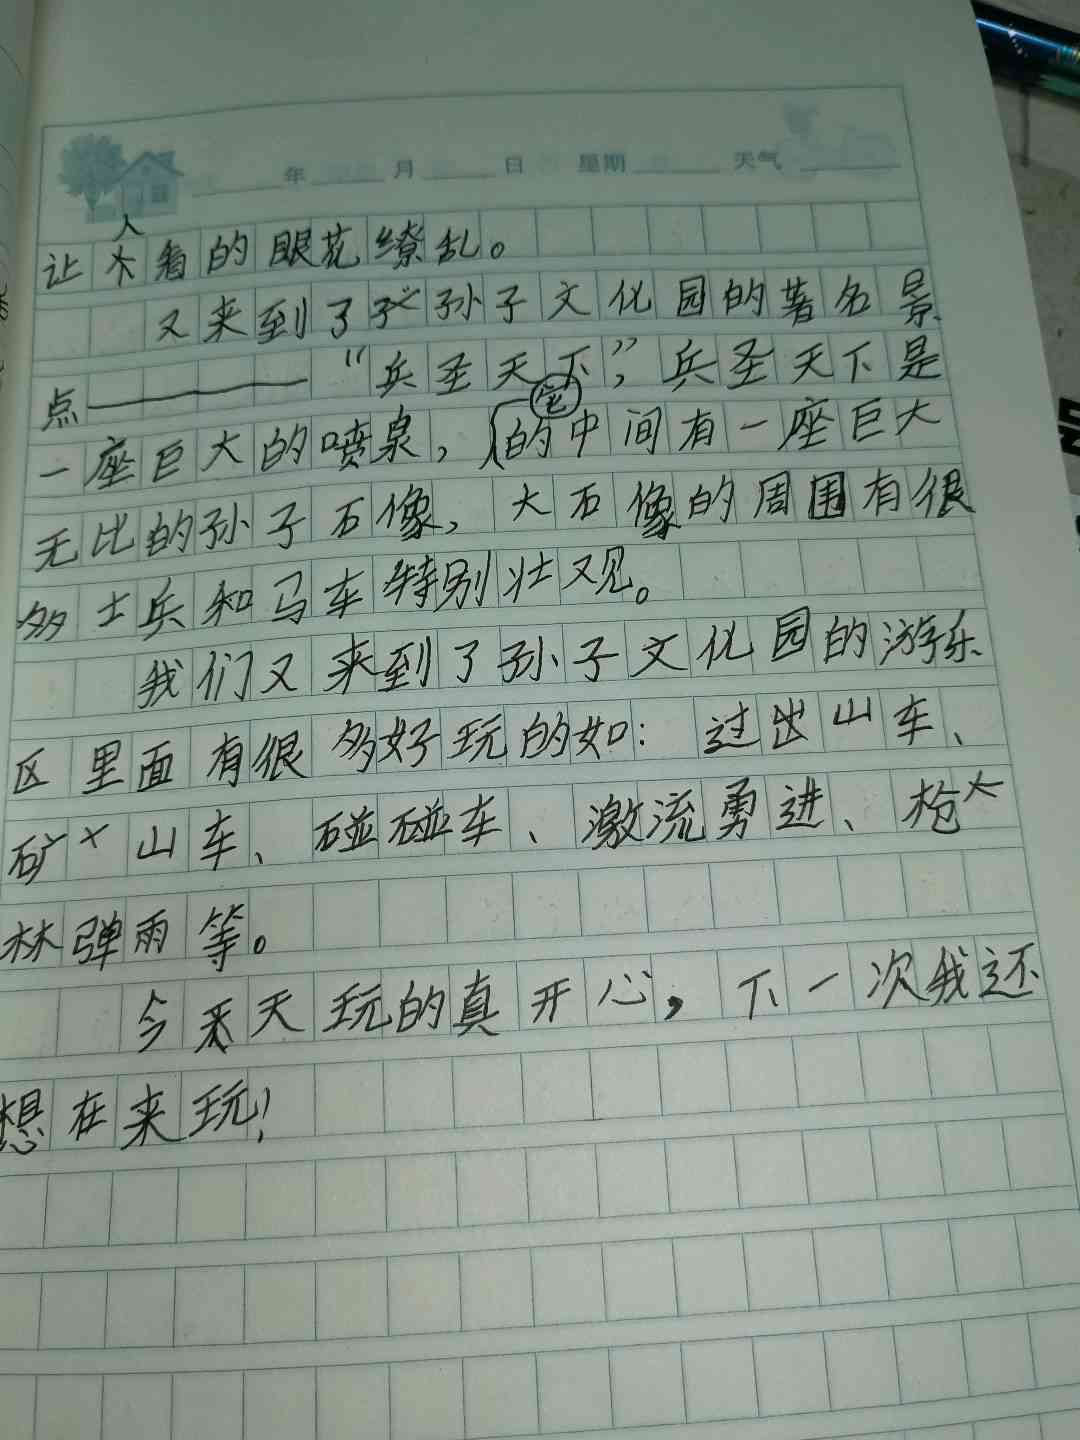 年 月 日 星期 天气
让人看的眼花缭乱。
又来到了孙子文化园的著名景
点———“兵圣天下”,兵圣天下是
一座巨大的喷泉,它的中间有一座巨大
无比的孙子石像,大石像的周围有很
多士兵和马车特别壮观。
我们又来到了孙子文化园的游乐
区里面有很多好玩的如:过出山车、
矿山车、碰碰车、激流勇进、枪
林弹雨等。
今天玩的真开心,下一次我还
想在来玩!